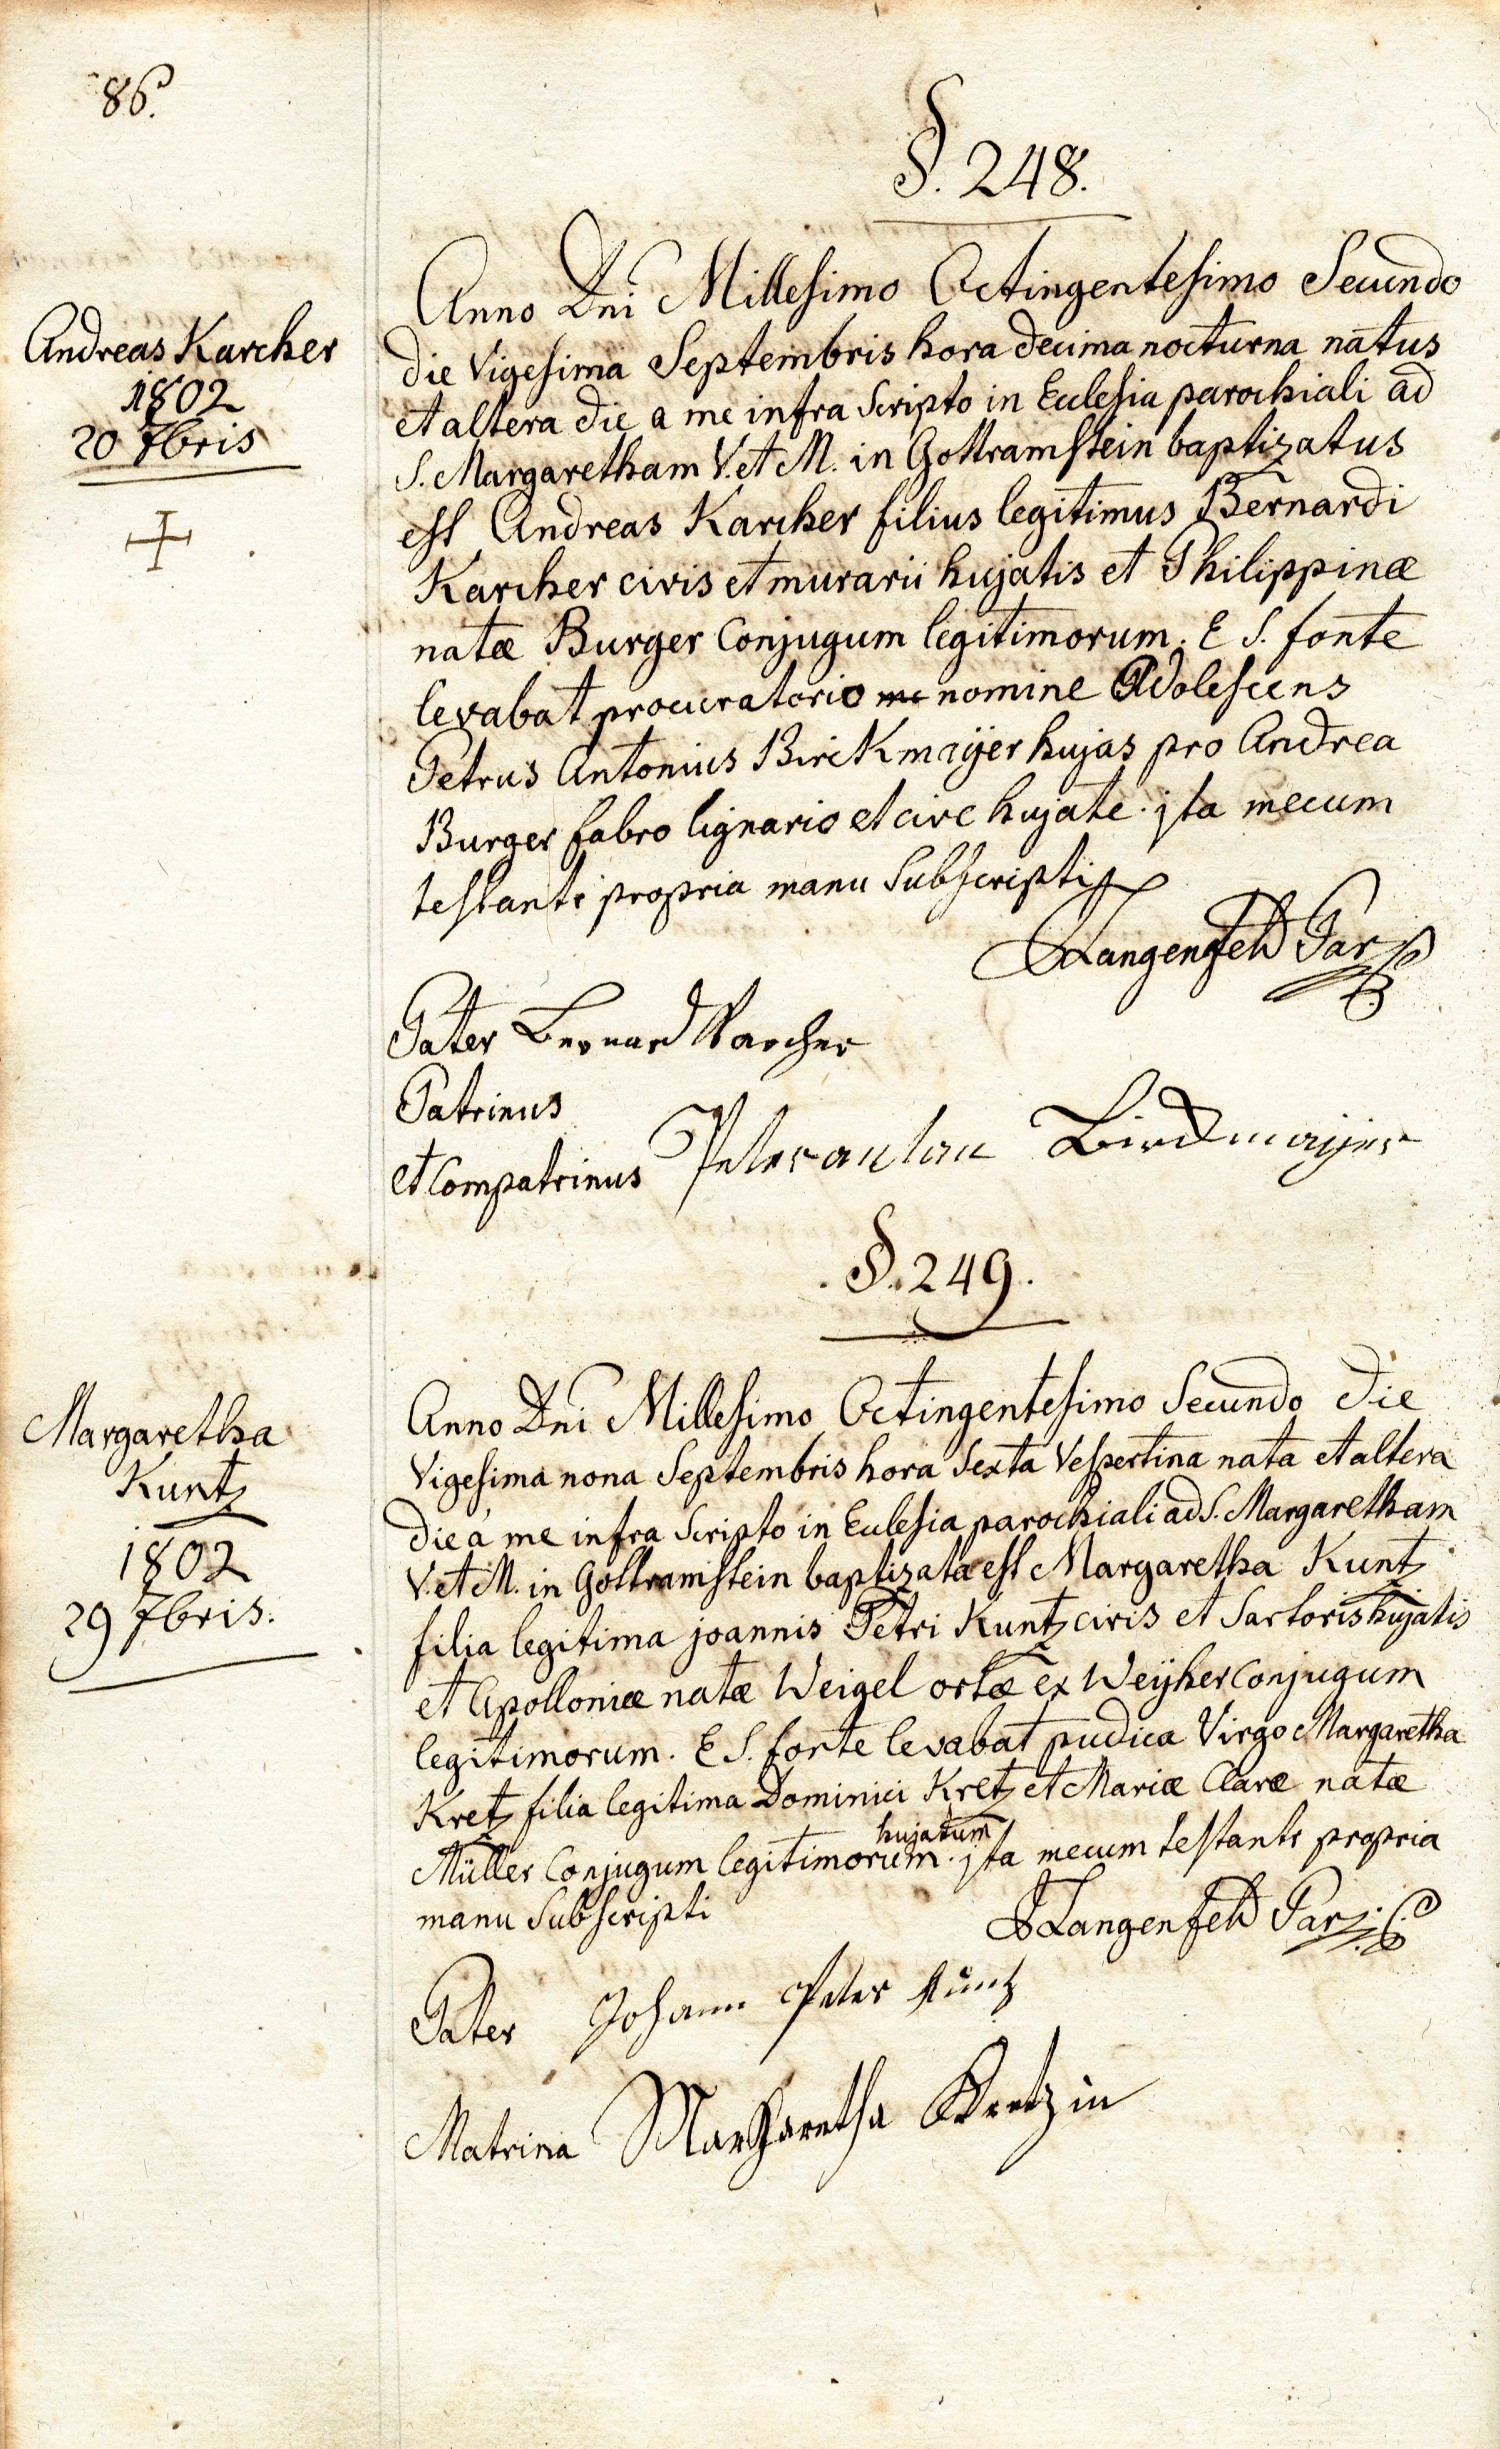 86.
§. 248.
Andreas Karcher
1802
20 7bris
Anno Dni Millesimo Octingentesimo Secundo
die Vigesima Septembris hora decima nocturna natus
et altera die a me infra Scripto in Ecclesia parochiali ad
S. Margaretham V. et M. in Gottramstein baptizatus
est Andreas Karcher filius legitimus Bernardi
Karcher civis et murarii hujatis et Philippinæ
natæ Burger Conjugum legitimorum. E S. fonte
levabat procuratorio me nomine Adolescens
Petrus Antonius Birckmaÿer hujas pro Andrea
Burger fabro lignario et cive hujate. jta mecum
testante propria manu Subscripti
Langenfeld Par
Pater Bernard Karcher
Patrinus
et Compatrinus Peter anton Birckmaÿer
§. 249.
Margaretha
Kuntz
1802
29 7bris.
Anno Dni Millesimo Octingentesimo Secundo die
Vigesima nona Septembris hora Sexta Vespertina nata et altera
die á me infra Scripto in Ecclesia parochiali ad S. Margaretham
V. et M. in Gottramstein baptizata est Margaretha Kuntz
filia legitima joannis Petri Kuntz civis et Sartoris hujatis
et Apolloniæ natæ Weigel ortæ ex Weÿher Conjugum
legitimorum. E S. fonte levabat pudica Virgo Margaretha
Kretz filia legitima Dominici Kretz et Mariæ Claræ natæ
Müller Conjugum legitimorum hujatum. jta mecum testante propria
manu Subscripti
Langenfeld Par
Pater Johann Peter Kuntz
Matrina Margaretha Kretzin